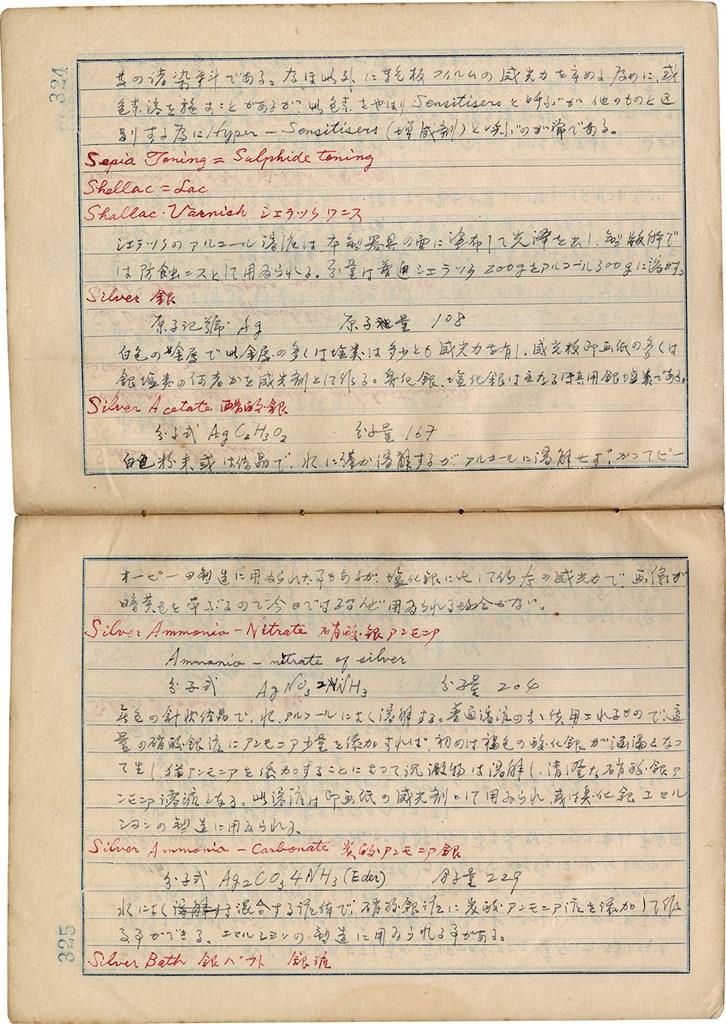 324
其の諸染料である。なほ此外に乾板フィルムの感光力を高める為めに、或
色素液を施すことがあるが、此色素をやはり Sensitisers と呼ぶが他のものと区
別する為に Hyper-Sensitisers (増感剤) と呼ぶのが常である。
Sepia Toning = Sulphide toning
Shellac = Lac
Shallac・Varnish シエラックワニス
シエラックのアルコール溶液は木製器具の面に塗布して光沢を出し、製版術で
は防蝕ニスとして用ゐられる。分量は普通シエラック200gをアルコール300gに溶かす。
Silver 銀
原子記號 Ag 原子量 108
白色の金属で此金属の多くは塩類は多少とも感光力を有し、感光板印画紙の多くは
銀塩類の何者かを感光剤として作る。臭化銀、塩化銀は主なる用銀塩類である。
Silver Acetate 醋酸銀
分子式 AgC2H3O2 分子量 167
白色粉末或は結晶で、水に僅か溶解するがアルコールに溶解せず、かつてピー
オーピーの製造に用ゐられた事もあるが、塩化銀に比して感光力で画像が
暗黄色を帯ぶるので今日では殆んど用ゐられる場合がない。
Silver Ammonia-Nitrate 硝酸銀アンモニア
Ammonia-nitrate of silver
分子式 AgNO3 2NH3 分子量 204
無色の針状結晶で、水、アルコールによく溶解する。普通溶液のまゝ使用されるもので、適
量の硝酸銀液にアンモニア少量を添加すれば、初めは褐色の酸化銀が沈澱となつ
て生じ、猶アンモニアを添加することによつて沈澱物は溶解し、清澄な硝酸銀ア
ンモニア溶液となる。此溶液は印画紙の感光剤として用ゐられ、或は臭化銀エマル
ションの製造に用ゐられる。
Silver Ammonia-Carbonate 炭酸アンモニア銀
分子式 Ag2CO3 4NH3 (Eder) 分子量 229
水によく混合する液体で、硝酸銀液に炭酸アンモニア液を添加して作
る事ができる、エマルションの製造に用ゐられる事がある。
Silver Bath 銀バット 銀液
325